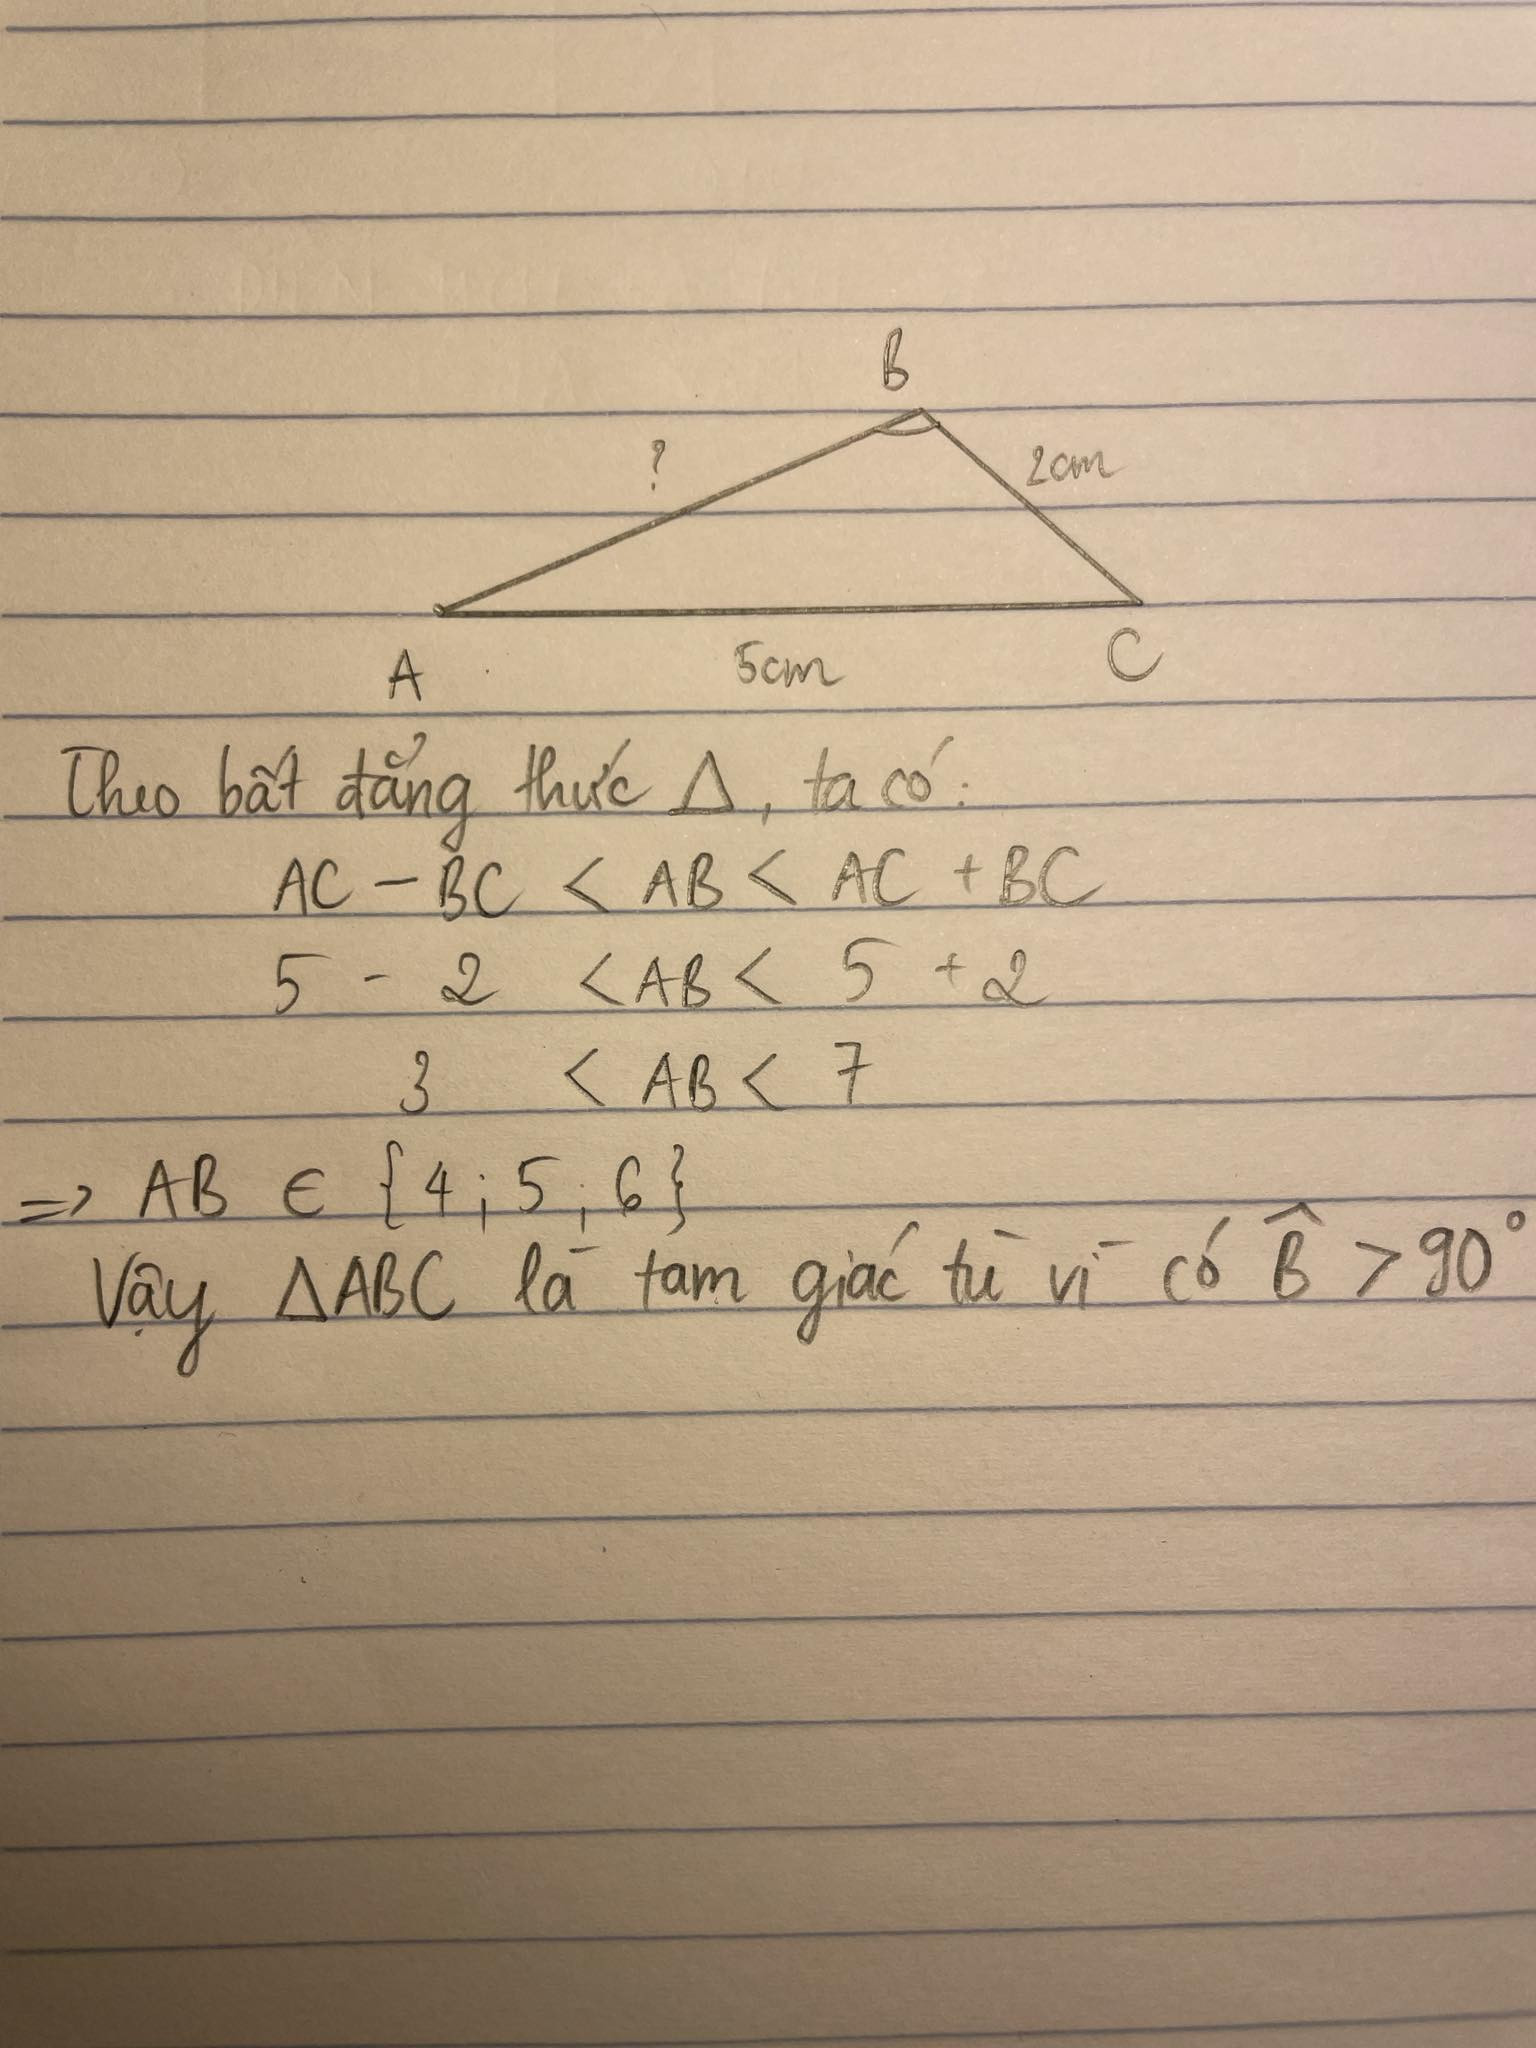 B
?
2cm
A
5cm
C
Theo bất đẳng thức Δ, ta có:
AC - BC < AB < AC + BC
5 - 2 < AB < 5 + 2
3 < AB < 7
=> AB ∈ {4; 5; 6}
Vậy ΔABC là tam giác tù vì có B̂ > 90°